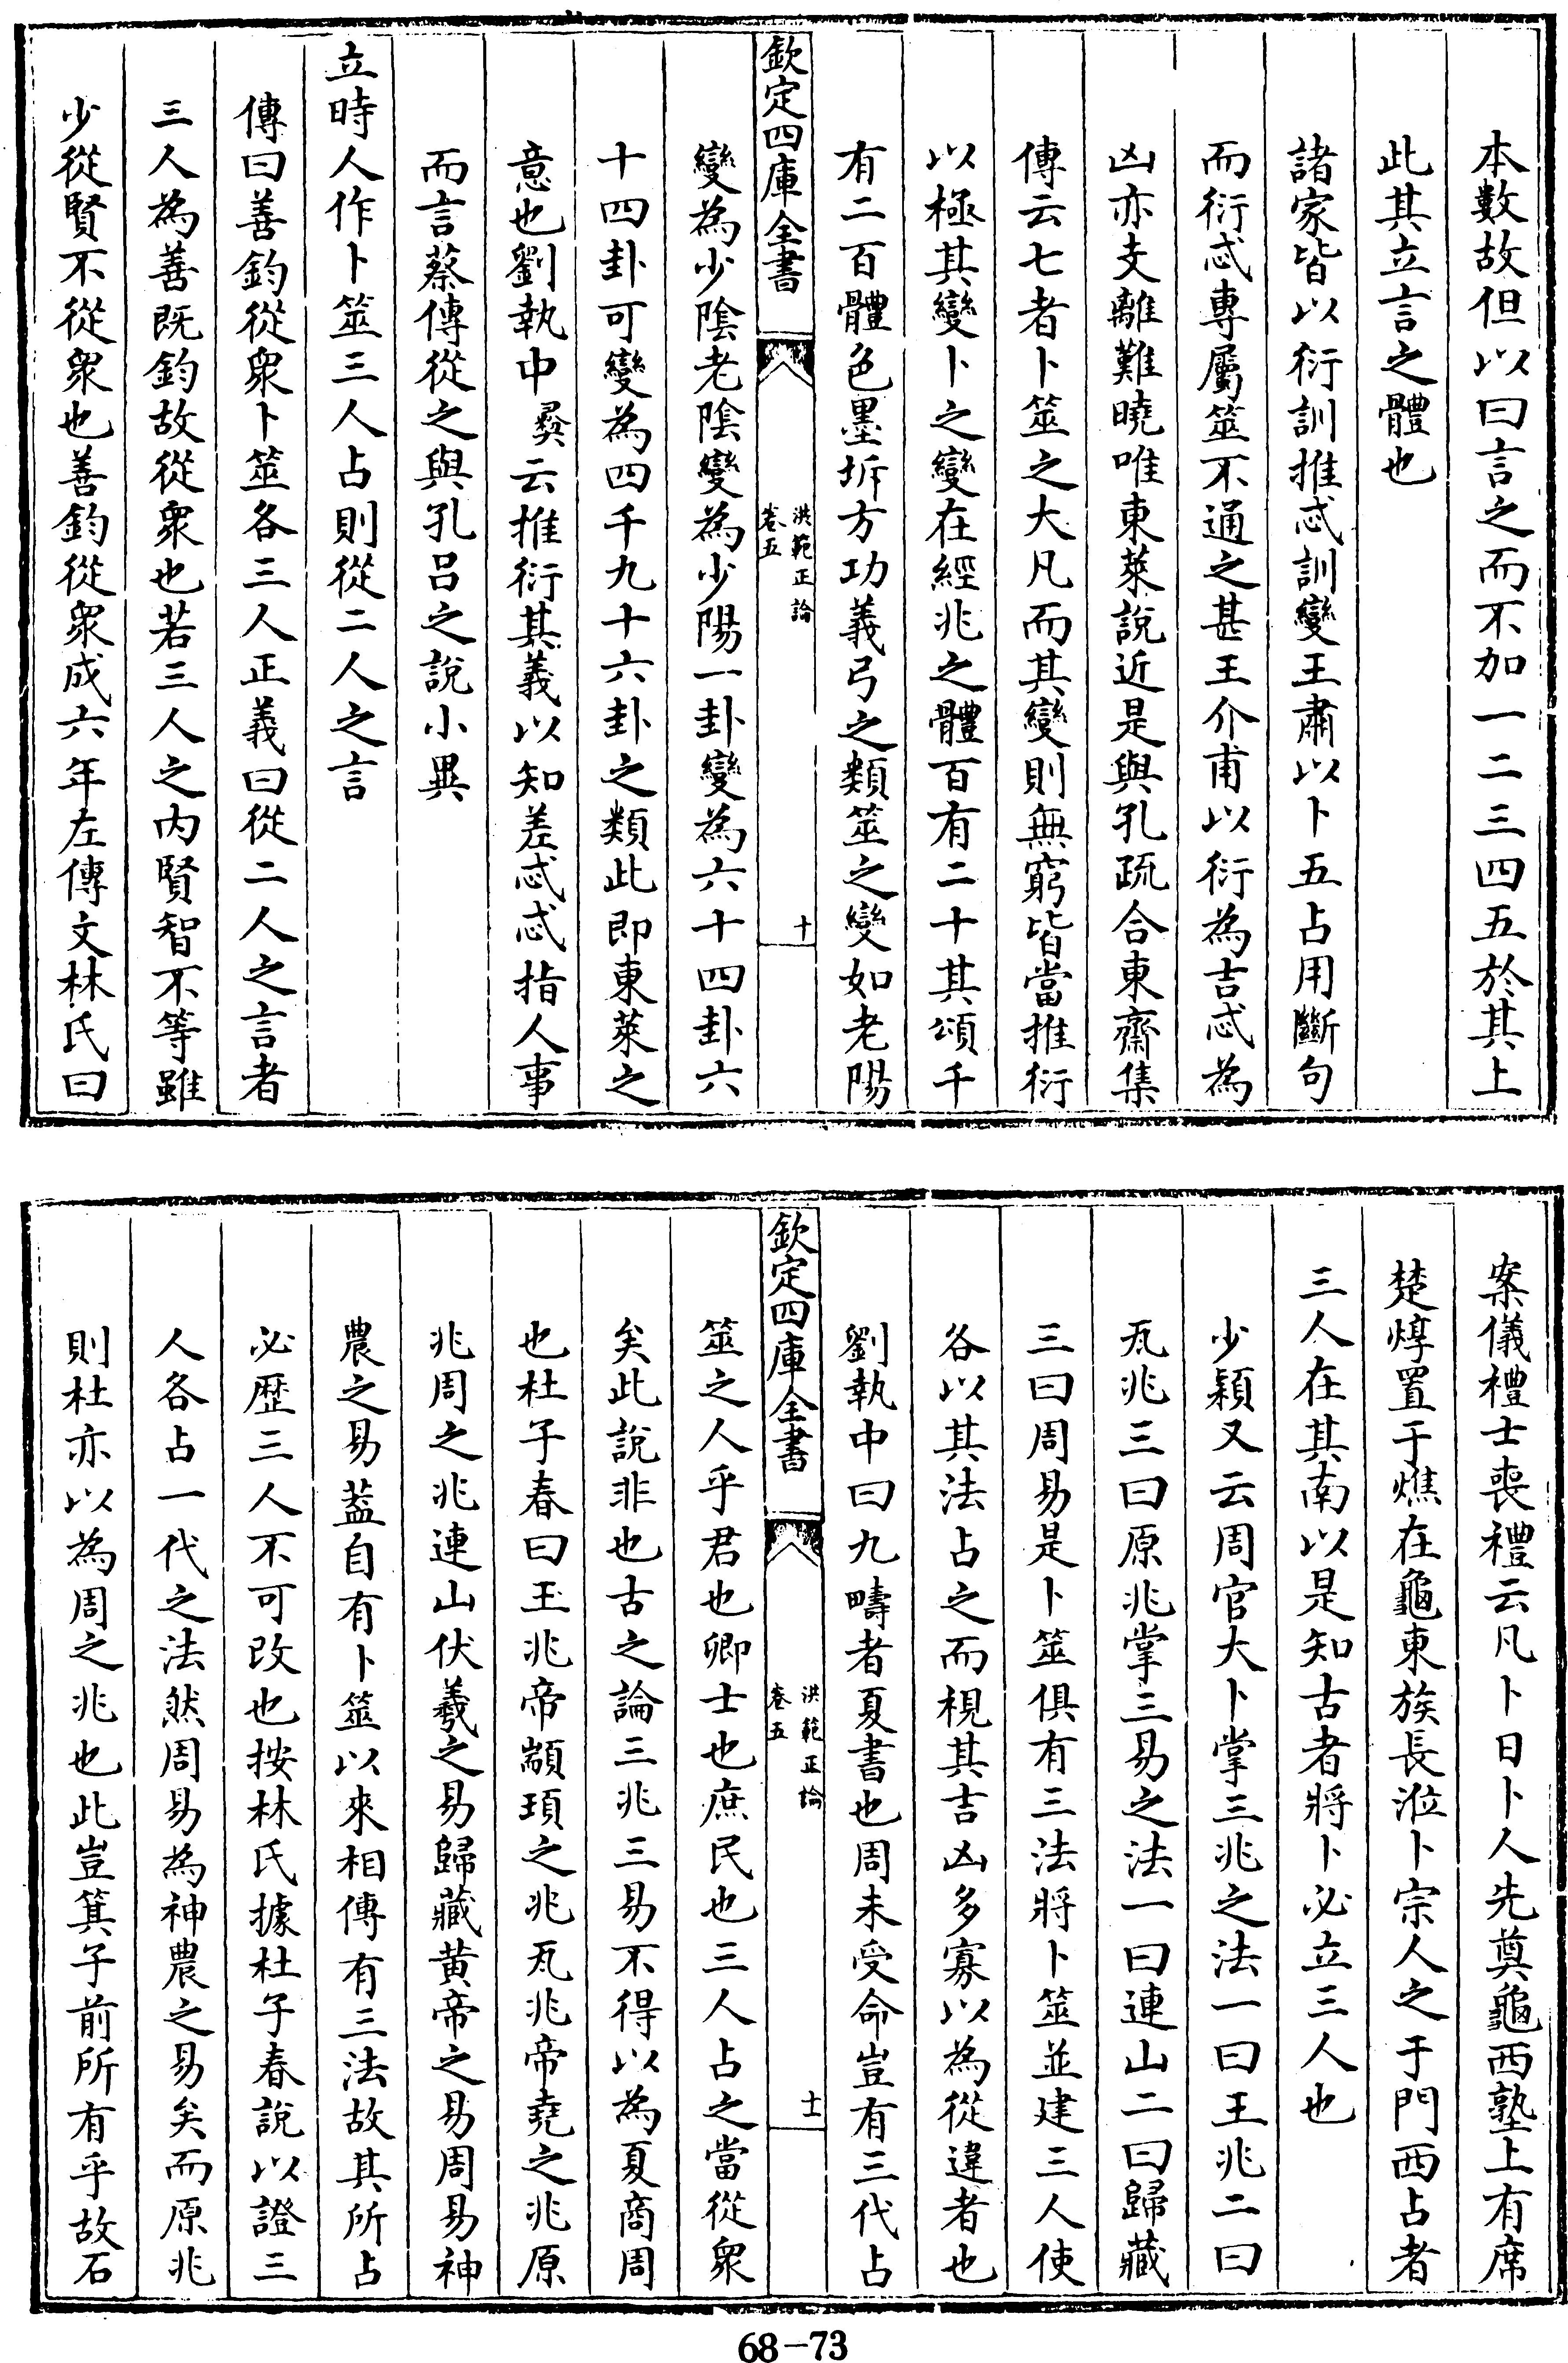 本數故但以曰言之而不加一二三四五於其上
此其立言之體也
諸家皆以衍訓推忒訓變王肅以卜五占用斷句
而衍忒專屬筮不通之甚王介甫以衍為吉忒為
凶亦支離難曉唯東萊說近是與孔疏合東齋集
傳云七者卜筮之大凡而其變則無窮皆當推衍
以極其變卜之變在經兆之體百有二十其頌千
有二百體色墨坼方功義弓之類筮之變如老陽
欽定四庫全書
洪範正論
卷五
十
變為少陰老陰變為少陽一卦變為六十四卦六
十四卦可變為四千九十六卦之類此即東萊之
意也劉執中彜云推衍其義以知差忒忒指人事
而言蔡傳從之與孔呂之說小異
立時人作卜筮三人占則從二人之言
傳曰善鈞從衆卜筮各三人正義曰從二人之言者
三人為善既鈞故從衆也若三人之內賢智不等雖
少從賢不從衆也善鈞從衆成六年左傳文林氏曰
案儀禮士喪禮云凡卜日卜人先奠龜西塾上有席
楚焞置于燋在龜東族長涖卜宗人之于門西占者
三人在其南以是知古者將卜必立三人也
少穎又云周官大卜掌三兆之法一曰玉兆二曰
瓦兆三曰原兆掌三易之法一曰連山二曰歸藏
三曰周易是卜筮俱有三法將卜筮並建三人使
各以其法占之而視其吉凶多寡以為從違者也
劉執中曰九疇者夏書也周未受命豈有三代占
欽定四庫全書
洪範正論
卷五
十一
筮之人乎君也卿士也庶民也三人占之當從衆
矣此說非也古之論三兆三易不得以為夏商周
也杜子春曰玉兆帝顓頊之兆瓦兆帝堯之兆原
兆周之兆連山伏羲之易歸藏黃帝之易周易神
農之易葢自有卜筮以來相傳有三法故其所占
必歴三人不可改也按林氏據杜子春說以證三
人各占一代之法然周易為神農之易矣而原兆
則杜亦以為周之兆也此豈箕子前所有乎故石
68-73